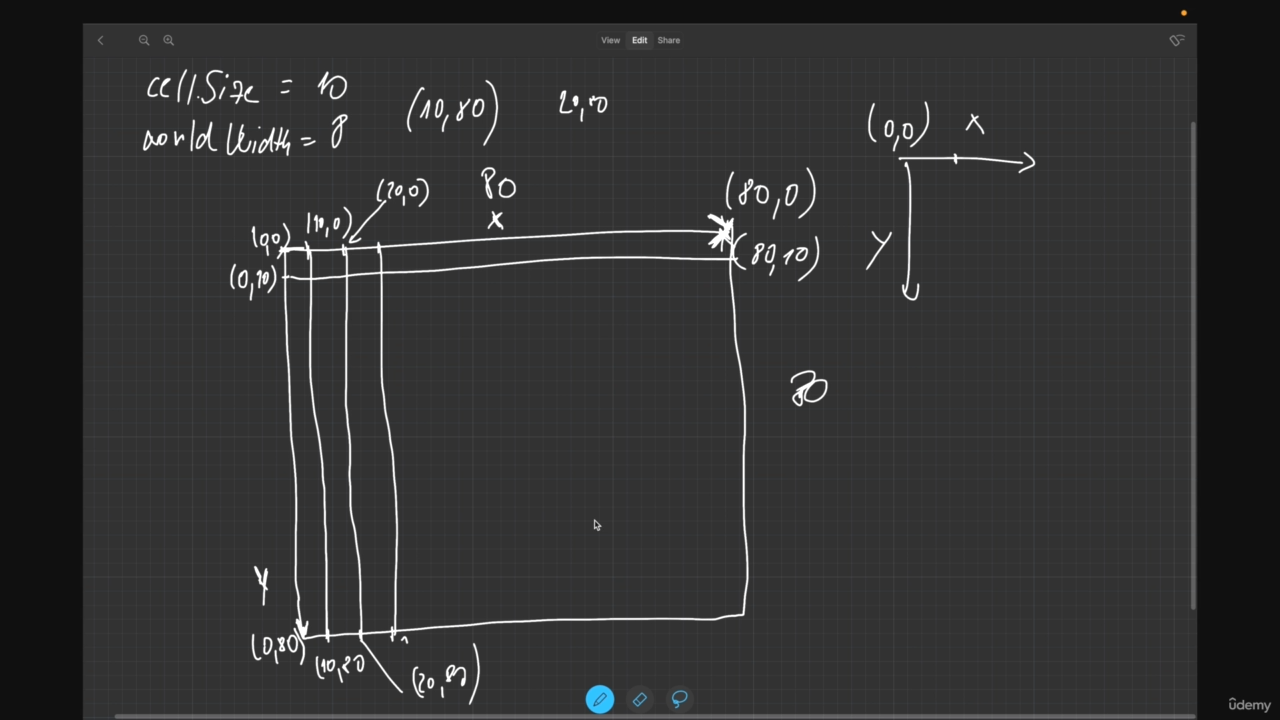 View Edit Share
cellSize = 10
worldWidth = 8
(10,80)
20,10
(0,0) X
Y
80
X
(80,0)
(20,0)
(10,0)
(0,0)
(0,10)
(80,10)
80
Y
(0,80)
(10,80
(20,80)
ûdemy